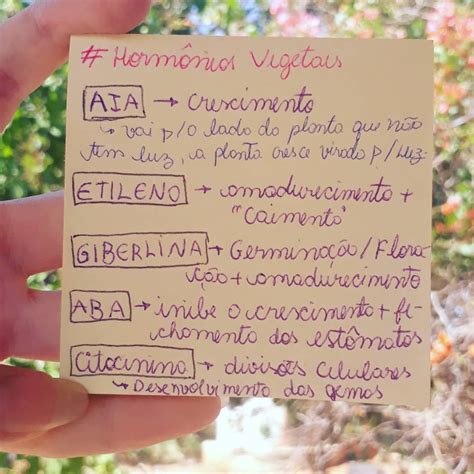 # Hormônios Vegetais
AIA → Crescimento
↳ vai p/o lado da planta que não
tem luz, a planta cresce virada p/luz
ETILENO → amadurecimento +
"Caimento"
GIBERLINA → Germinação/Flora-
ção + amadurecimento
ABA → inibe o crescimento + fe-
chamento dos estômatos
Citocinina → divisões celulares
↳ Desenvolvimento das gemas